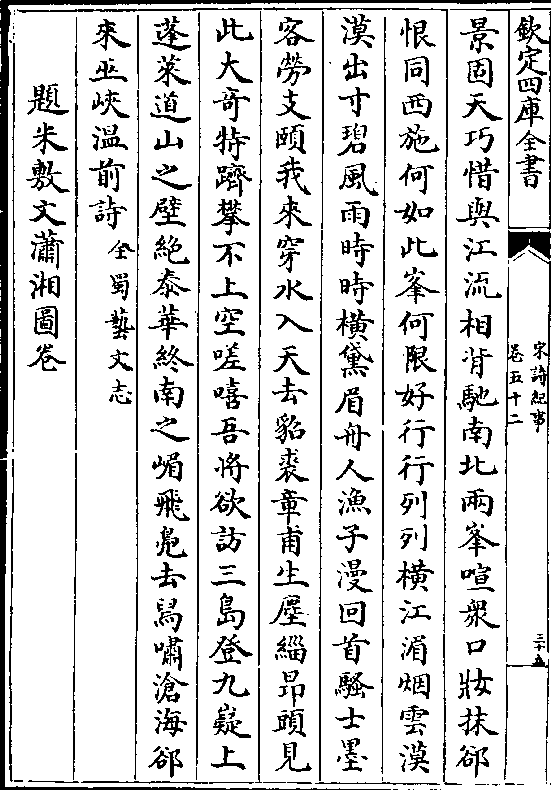 欽定四庫全書
宋詩紀事
卷五十二
三十五
景固天巧惜與江流相背馳南北兩峯喧衆口妝抹郤
恨同西施何如此峯何限好行行列列橫江湄烟雲漠
漠出寸碧風雨時時橫黛眉舟人漁子漫回首騷士墨
客勞支頤我來穿水入天去貂裘章甫生塵緇昂頭見
此大竒特躋攀不上空嗟嘻吾將欲訪三島登九嶷上
蓬萊道山之壁絶泰華終南之嵋飛鳬去舄嘯滄海郤
來巫峽温前詩全蜀藝文志
題米敷文瀟湘圖卷